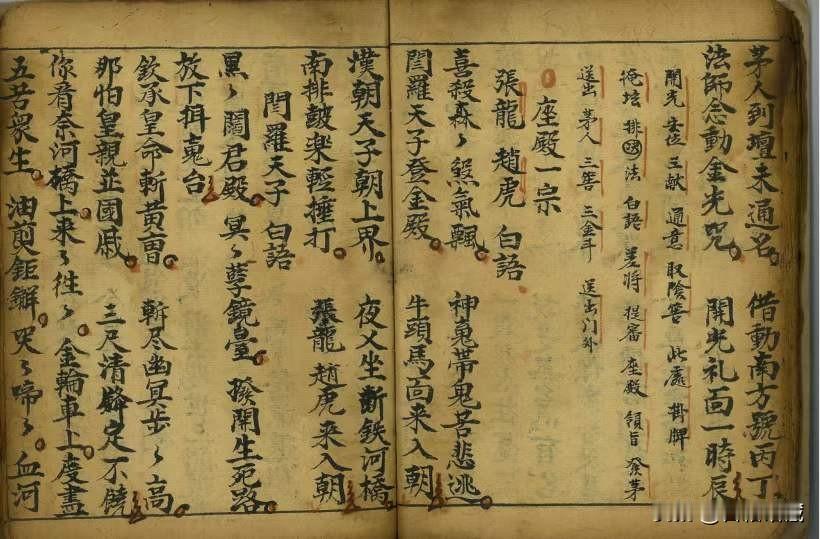 茅人到壇未通名。 借動南方號丙丁
法師念動金光咒。 開光礼靣一時辰
開光 安位 三献 通意 取陰筶 此處 掛牌
掩坛 排國法 白語 差将 提審 座殿 領旨 發茅
送出 茅人 三筶 三金斗 送出门外
○座殿一宗
張龍 趙虎 白語
喜殺森〻煞氣飄。 神鬼帶鬼苦悲逃
閆羅天子登金殿 牛頭馬靣来入朝
漢朝天子朝上界。 夜乂坐断鉄河橋
南排鼓楽輕捶打。 張龍趙虎来入朝
閆羅天子 白語
黑〻閻君殿。冥〻孽鏡臺。撥開生死路。
放下䰟台
欽承皇命斬黄曾。 斬尽幽冥步〻高
那怕皇親並國戚。 三尺清定不饒
你看奈河橋上来〻往〻。金輪車上度盡
五苦衆生。油煎鉅觧。哭〻啼〻。血河